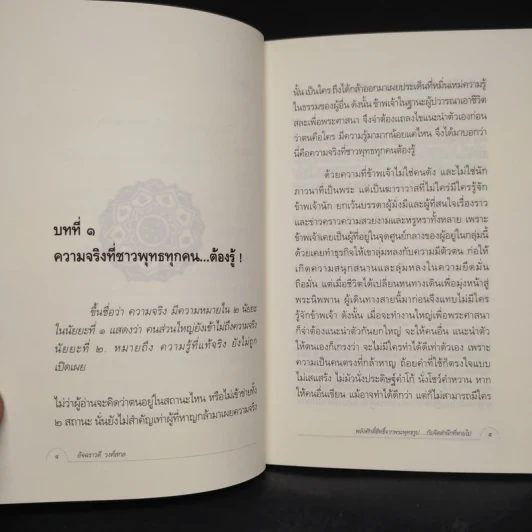 บทที่ ๑
ความจริงที่ชาวพุทธทุกคน...ต้องรู้ !
ขึ้นชื่อว่า ความจริง มีความหมายใน ๒ นัยยะ
ในนัยยะที่ ๑ แสดงว่า คนส่วนใหญ่ยังเข้าไม่ถึงความจริง
นัยยะที่ ๒. หมายถึง ความรู้ที่แท้จริง ยังไม่ถูก
เปิดเผย
ไม่ว่าผู้อ่านจะคิดว่าตนอยู่ในสถานะไหน หรือไม่เข้าข่ายทั้ง
๒ สถานะ นั่นยังไม่สำคัญเท่าผู้ที่หาญกล้ามาเผยความจริง
๔ อัจฉราวดี วงศ์สกล
นั้น เป็นใคร ถึงได้กล้าออกมาเผยประเด็นที่หมิ่นเหม่ความรู้
ในธรรมของผู้อื่น ดังนั้น ข้าพเจ้าในฐานะผู้ปวารณาเอาชีวิต
สละเพื่อพระศาสนา จึงจำต้องแถลงไขแนะนำตัวเองก่อน
ว่าตนคือใคร มีความรู้มามากน้อยแค่ไหน จึงได้มาบอกว่า
นี่คือความจริงที่ชาวพุทธทุกคนต้องรู้
ด้วยความที่ข้าพเจ้าไม่ใช่คนดัง และไม่ใช่นัก
ภาวนาที่เป็นพระ แต่เป็นฆาราวาสที่ไม่ใคร่มีใครรู้จัก
ข้าพเจ้านัก ยกเว้นบรรดาผู้มั่งมีและผู้ที่สนใจเรื่องราว
และข่าวคราวความสวยงามและหรูหราทั้งหลาย เพราะ
ข้าพเจ้าเคยเป็นผู้ที่อยู่ในจุดศูนย์กลางของผู้อยู่ในกลุ่มนี้
ด้วยเคยทำธุรกิจให้เขาลุ่มหลงกับความมีตัวตน ก่อให้
เกิดความสนุกสนานและลุ่มหลงในความยึดมั่น
ถือมั่น แต่เมื่อชีวิตได้เปลี่ยนหนทางเดินเพื่อมุ่งหน้าสู่
พระนิพพาน ผู้เดินทางสายนี้มาก่อนจึงแทบไม่มีใคร
รู้จักข้าพเจ้า ดังนั้น เมื่อจะทำงานใหญ่เพื่อพระศาสนา
ก็จำต้องแนะนำตัวกันยกใหญ่ จะให้คนอื่น แนะนำตัว
ให้ตนเองก็เกรงว่า จะไม่มีใครทำได้ดีเท่าตัวเอง เพราะ
ความเป็นคนตรงที่กล้าหาญ ถ้อยคำที่ใช้ก็ตรงใจแบบ
ไม่เสแสร้ง ไม่มัวนั่งประดิษฐ์คำโก้ นั่งโชว์คำหวาน หาก
ให้คนอื่นเขียน แม้อาจทำได้ดีกว่า แต่ก็ไม่สามารถมีใคร
พลังศักดิ์สิทธิ์จากพระพุทธรูป... กับจิตสำนึกที่หายไป ๕